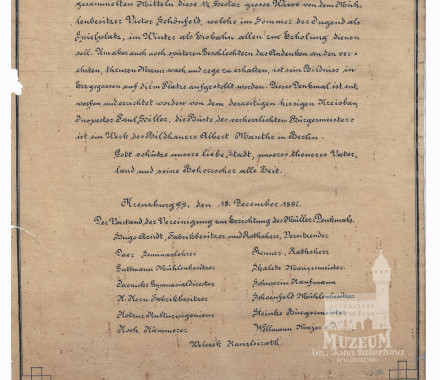 gesammelten Mitteln diese 1¼ Hectar grosse Wiese von dem Müh-
lenbesitzer Victor Schönfeld, welche im Sommer der Jugend als
Spielplatz, im Winter als Eisbahn allen zur Erholung dienen
soll. Um aber auch noch späteren Geschlechtern das Andenken an den ver-
ehrten, theuren Mann wach und rege zu erhalten, ist sein Bildniss in
Erz gegossen auf dem Platze aufgestellt worden. Dieses Denkmal ist ent-
worfen und errichtet worden von dem derzeitigen hiesigen Kreisbau
Inspector Paul Siller, die Büste des verherrlichten Bürgermeisters
ist ein Werk des Bildhauers Albert Manthe in Berlin.
Gott schütze unsere liebe Stadt, unseres theueres Vater-
land und seine Beherrscher alle Zeit.
Kreuzburg O/S, den 18. December 1892.
Der Vorstand der Vereinigung zur Errichtung des Müller-Denkmals.
Hugo Arndt, Fabrikbesitzer und Rathsherr, Vorsitzender
Paer Seminarlehrer
Renner, Rathsherr
Guttmann Mühlenbesitzer
Skaletz Maurermeister
Jaenicke Gymnasialdirector
Schworin Kaufmann
H. Horn Fabrikbesitzer
Schoenfeld Mühlenbesitzer
Hotzer Kulturingenieur
Steinke Bürgermeister
Koch Kämmerer
Willmann
Welczek Kanzleirath.
MUZEUM
im. Jana Dzierżona